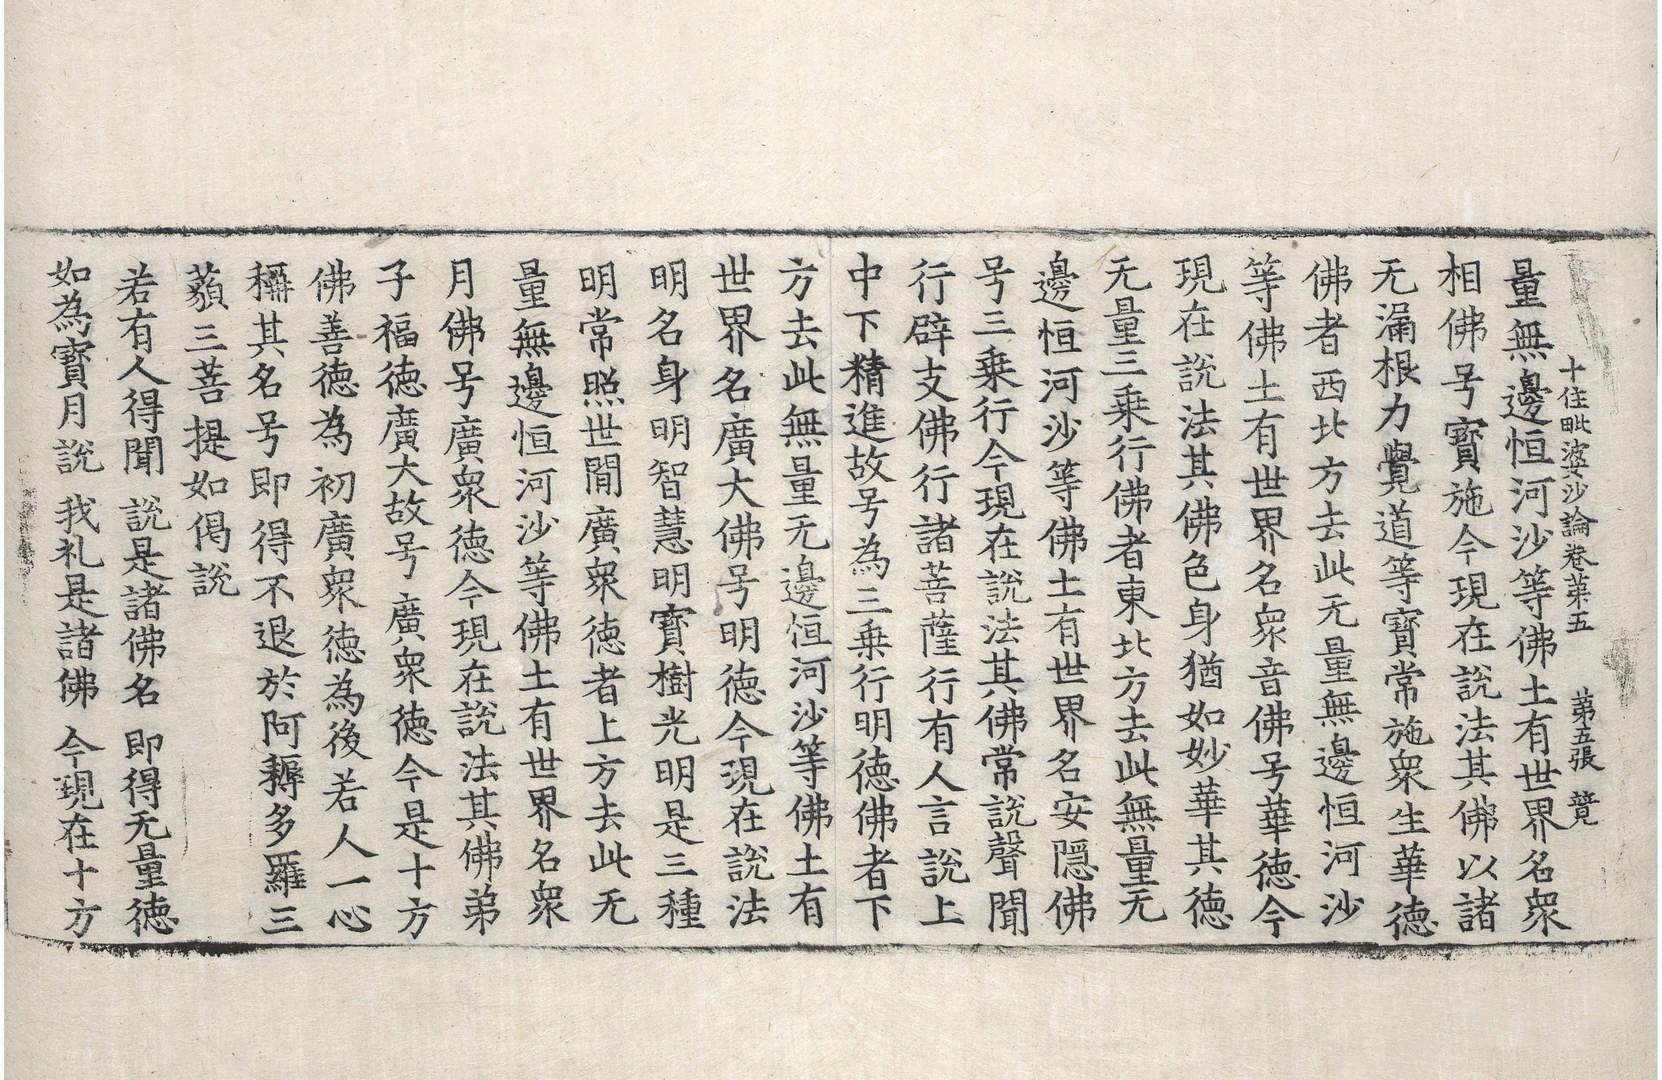 十住毗婆沙論卷苐五 苐五張 䇾
量無邊恒河沙等佛土有世界名衆
相佛号寶施今現在說法其佛以諸
无漏根力覺道等寶常施衆生華德
佛者西北方去此无量無邊恒河沙
等佛土有世界名衆音佛号華德今
現在說法其佛色身猶如妙華其德
无量三乗行佛者東北方去此無量无
邊恒河沙等佛土有世界名安隱佛
号三乗行今現在說法其佛常說聲聞
行辟支佛行諸菩薩行有人言說上
中下精進故号為三乗行明德佛者下
方去此無量无邊恒河沙等佛土有
世界名廣大佛号明德今現在說法
明名身明智慧明寶樹光明是三種
明常照世間廣衆德者上方去此无
量無邊恒河沙等佛土有世界名衆
月佛号廣衆德今現在說法其佛弟
子福德廣大故号廣衆德今是十方
佛善德為初廣衆德為後若人一心
稱其名号即得不退於阿耨多羅三
藐三菩提如偈說
若有人得聞 說是諸佛名 即得无量德
如為寶月說 我礼是諸佛 今現在十方